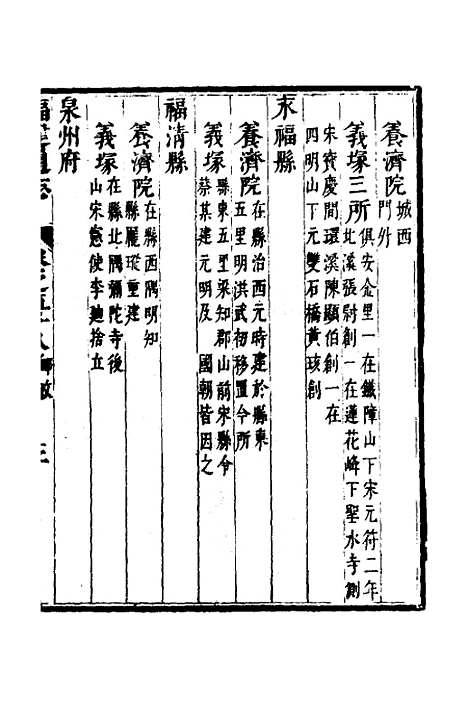 養濟院城西
門外
義塚三所俱安金里一在鐵障山下宋元符二年
北溪張尉創一在蓮花峰下聖水寺創
宋寶慶間環溪陳顯伯創一在
四明山下元雙石橋黄琰創
永福縣
養濟院在縣治西元時建於縣東
五里明洪武初移置今所
義塚縣東五里梁知郡山前宋縣令
蔡其建元明及 國朝皆因之
福清縣
養濟院在縣西隅明知
縣龎瑽重建
義塚在縣北隅彌陀寺後
山宋憲使李勉捨立
泉州府
福建通志